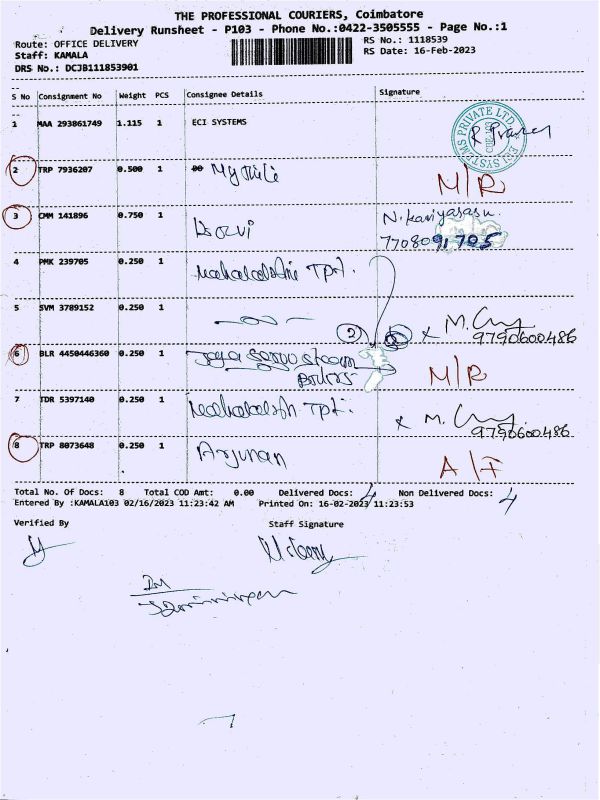 THE PROFESSIONAL COURIERS, Coimbatore
Delivery Runsheet - P103 - Phone No.:0422-3505555 - Page No.:1
Route: OFFICE DELIVERY
RS No.: 1118539
Staff: KAMALA
RS Date: 16-Feb-2023
DRS No.: DCJB111853901
S No Consignment No Weight PCS Consignee Details Signature
1 MAA 293861749 1.115 1 ECI SYSTEMS
ECI SYSTEMS PRIVATE LTD.
2 TRP 7936207 0.500 1 M/R
3 CMM 141896 0.750 1
7708091705
4 PMK 239705 0.250 1 Tpt.
5 SVM 3789152 0.250 1 x
9790600486
6 BLR 4450446360 0.250 1 M/R
7 TDR 5397140 0.250 1 Tpt. x
9790600486
8 TRP 8073648 0.250 1 Arjunan A/F
Total No. Of Docs: 8 Total COD Amt: 0.00 Delivered Docs: 4 Non Delivered Docs: 4
Entered By :KAMALA103 02/16/2023 11:23:42 AM Printed On: 16-02-2023 11:23:53
Verified By Staff Signature